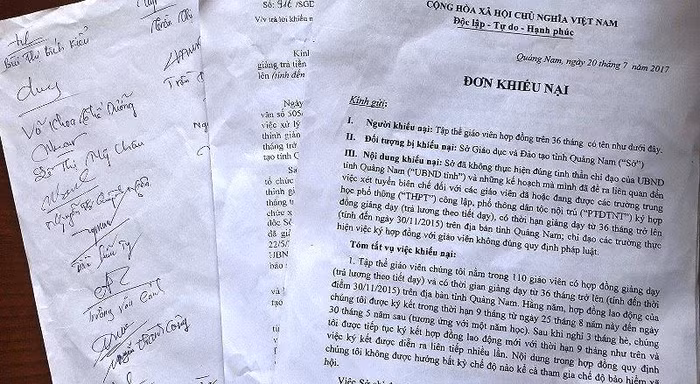 Bùi Thị Bích Kiều
Trần Thị
duy
Võ Khoa Lê Tể Dưỡng
Trần
Lê Thị Mỹ Châu
Trương Văn Cảnh
Số: 916 /SGD
V/v trả lời khiếu n
Kính
giảng trả tiền
lên (tính đến
Ngày
văn số 505
việc xử lý
thỉnh giản
tháng trở
tạo tỉnh Q
Sa
tổ chức
thỉnh gi
tháng t
chức x
đốc Sở
đã gi
22/5/
UBN
báo s
và l
tạo
CỘNG HÒA XÃ HỘI CHỦ NGHĨA VIỆT NAM
Độc lập - Tự do - Hạnh phúc
Quảng Nam, ngày 20 tháng 7 năm 2017
ĐƠN KHIẾU NẠI
Kính gửi:
I. Người khiếu nại: Tập thể giáo viên hợp đồng trên 36 tháng có tên như dưới đây.
II. Đối tượng bị khiếu nại: Sở Giáo dục và Đào tạo tỉnh Quảng Nam (“Sở”)
III. Nội dung khiếu nại: Sở đã không thực hiện đúng tinh thần chỉ đạo của UBND
tỉnh Quảng Nam (“UBND tỉnh”) và những kế hoạch mà mình đã đề ra liên quan đến
việc xét tuyển biên chế đối với các giáo viên đã hoặc đang được các trường trung
học phổ thông (“THPT”) công lập, phổ thông dân tộc nội trú (“PTDTNT”) ký hợp
đồng giảng dạy (trả lương theo tiết dạy), có thời hạn giảng dạy từ 36 tháng trở lên
(tính đến ngày 30/11/2015) trên địa bàn tỉnh Quảng Nam; chỉ đạo các trường thực
hiện việc ký hợp đồng với giáo viên không đúng quy định pháp luật.
Tóm tắt vụ việc khiếu nại:
1. Tập thể giáo viên chúng tôi nằm trong 110 giáo viên có hợp đồng giảng dạy
(trả lương theo tiết dạy) và có thời gian giảng dạy từ 36 tháng trở lên (tính đến thời
điểm 30/11/2015) trên địa bàn tỉnh Quảng Nam. Hàng năm, hợp đồng lao động của
chúng tôi được ký kết trong thời hạn 9 tháng từ ngày 25 tháng 8 năm này đến ngày
30 tháng 5 năm sau (tương ứng với một năm học). Sau khi nghỉ 3 tháng hè, chúng
tôi được tiếp tục ký kết hợp đồng lao động mới với thời hạn 9 tháng như trên và
việc ký kết được diễn ra liên tiếp nhiều lần. Nội dung trong hợp đồng quy định
chúng tôi không được hưởng bất kỳ chế độ nào kể cả tham gia chế độ bảo hiểm xã
hội.
Việc Sở ch